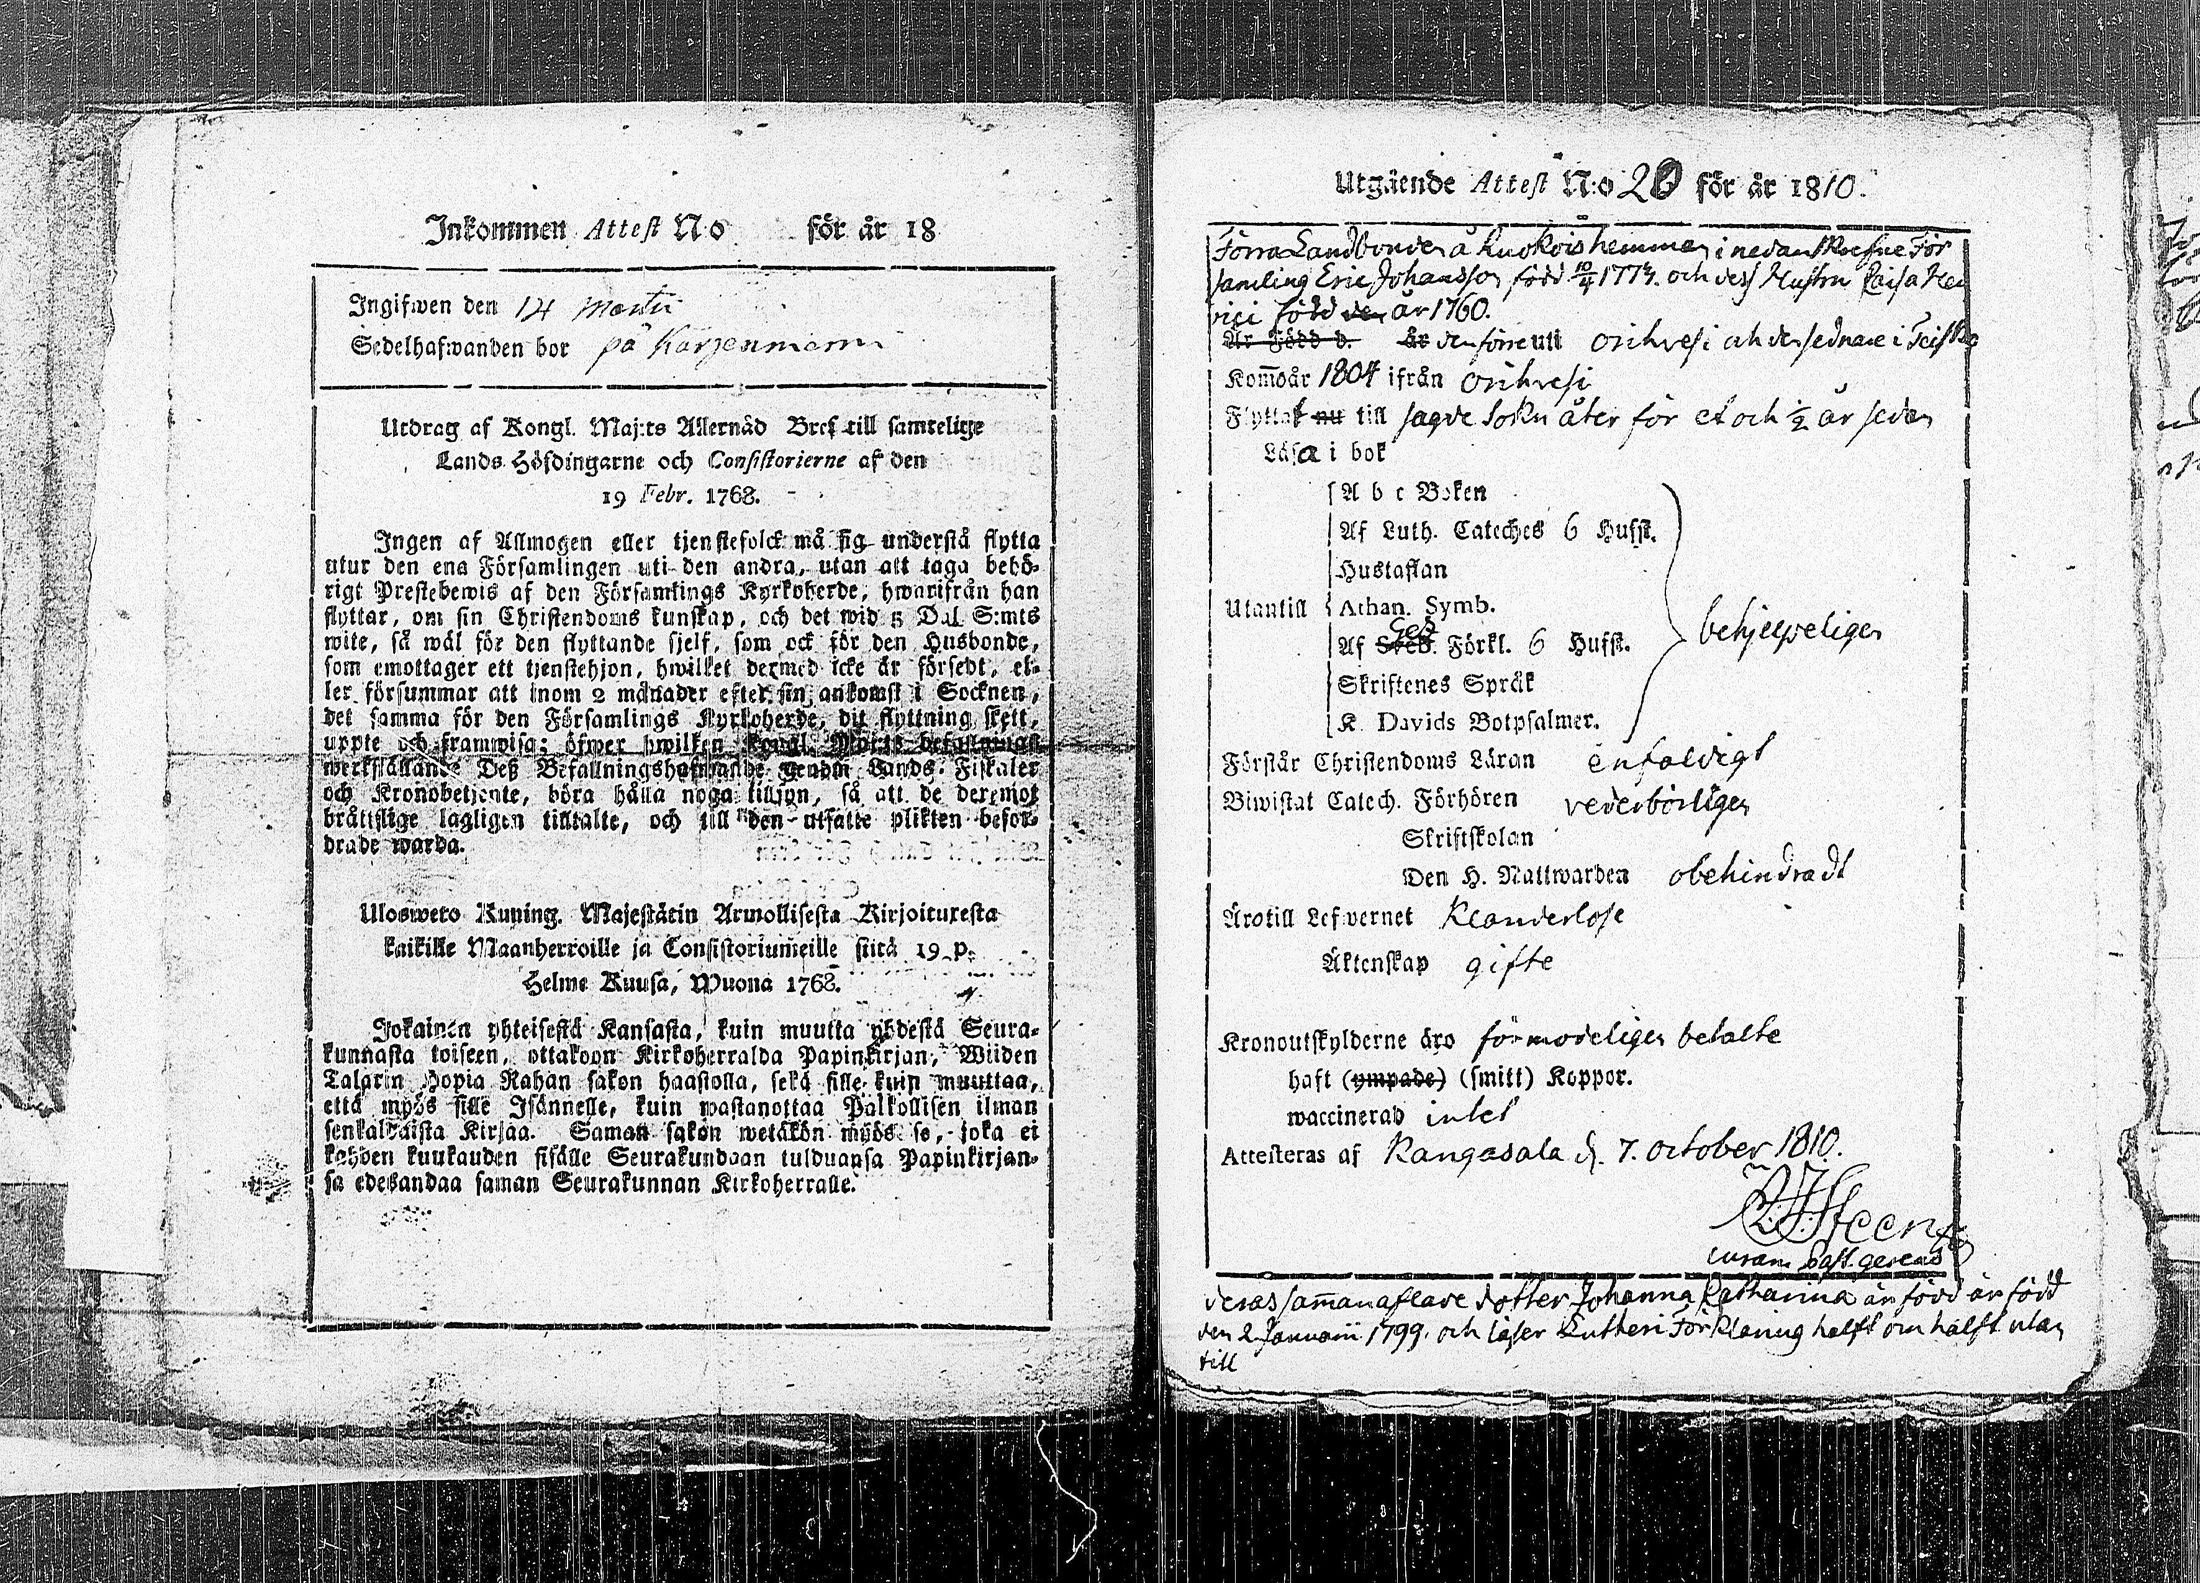 Inkommen Attest N:o för år 18
Ingifwen den 14 Martii
Sedelhafwanden bor på
Utdrag af Kongl. Maj:ts Allernåd Bref till samtelige
Lands Höfdingarne och Consistorierne af den
19 Febr. 1768.
Ingen af Allmogen eller tjenstefolck må sig understå flytta
utur den ena Församlingen uti den andra, utan att taga behö-
rigt Prestebewis af den Församlings Kyrkoherde, hwarifrån han
flyttar, om sin Christendoms kunskap, och det wid 5 Dal S:mts
wite, så wäl för den flyttande sjelf, som ock för den Husbonde,
som emottager ett tjenstehjon, hwilket dermed icke är försedt, el-
ler försummar att inom 2 månader efter sin ankomst i Socknen,
det samma för den Församlings Kyrkoherde, dit flyttning skett,
uppte och framwisa; öfwer hwilken Kongl. Maj:ts befallnings
werkställande Deß Befallningshafwande genom Lands-Fiskaler
och Kronobetjente, böra hålla noga tillsyn, så att de deremot
bråttslige lagligen tilltalte, och till den utsatte plikten befor-
drade warda.
Ulosweto Kuning. Majestätin Armollisesta Kirjoituxesta
kaikille Maanherroille ja Consistoriumeille siitä 19 p.
Helme Kuusa, Wuona 1768.
Jokainen yhteisestä Kansasta, kuin muutta yhdestä Seura-
kunnasta toiseen, ottakoon Kirkoherralda Papinkirjan, Wiiden
Talarin Hopia Rahan sakon haastolla, sekä sille kuin muuttaa,
että myös sille Isännelle, kuin wastanottaa Palkollisen ilman
senkaltaista Kirjaa. Saman sakon wetäkön myös se, joka ei
kahden kuukauden sisälle Seurakundaan tulduansa Papinkirjan-
sa edesandaa saman Seurakunnan Kirkoherralle.
Utgående Attest N:o 20 för år 1810.
Förra Landbonden å Kuokois hemman i nedanskrefne För
samling Eric Johansson född 10/4 1774. och dess Hustru Caisa Hen
rici född den år 1760.
Är Född d. är den förre uti Orihvesi och den sednare i Teisko
Kom̄o år 1804 ifrån Orihvesi
Flyttat nu till sagde Sokn åter för et och ½ år sedan
Läsa i bok
A b c Boken
Af Luth. Cateches 6 Hufst.
Hustaflan
Utantill Athan. Symb.
Af Sveb. Förkl. 6 Hufst.
Skriftenes Språk
K. Davids Botpsalmer.
behjelpeligen
Förstår Christendoms Läran enfaldigt
Biwistat Catech. Förhören vederbörligen
Skriftskolan
Den H. Nattwarden obehindradt
Äro till Lefwernet Klanderlöse
Äktenskap gifte
Kronoutskylderne äro förmodeligen betalte
haft (ympade) (smitt) Koppor.
waccinerad intet
Attesteras af Kangasala d. 7. October 1810.
Steen
curam Past. gerens
deras sam̄anaflade dotter Johanna Catharina är född är född
den 2 Januarii 1799. och läser Lutheri Förklaring hälft om hälft utan
till